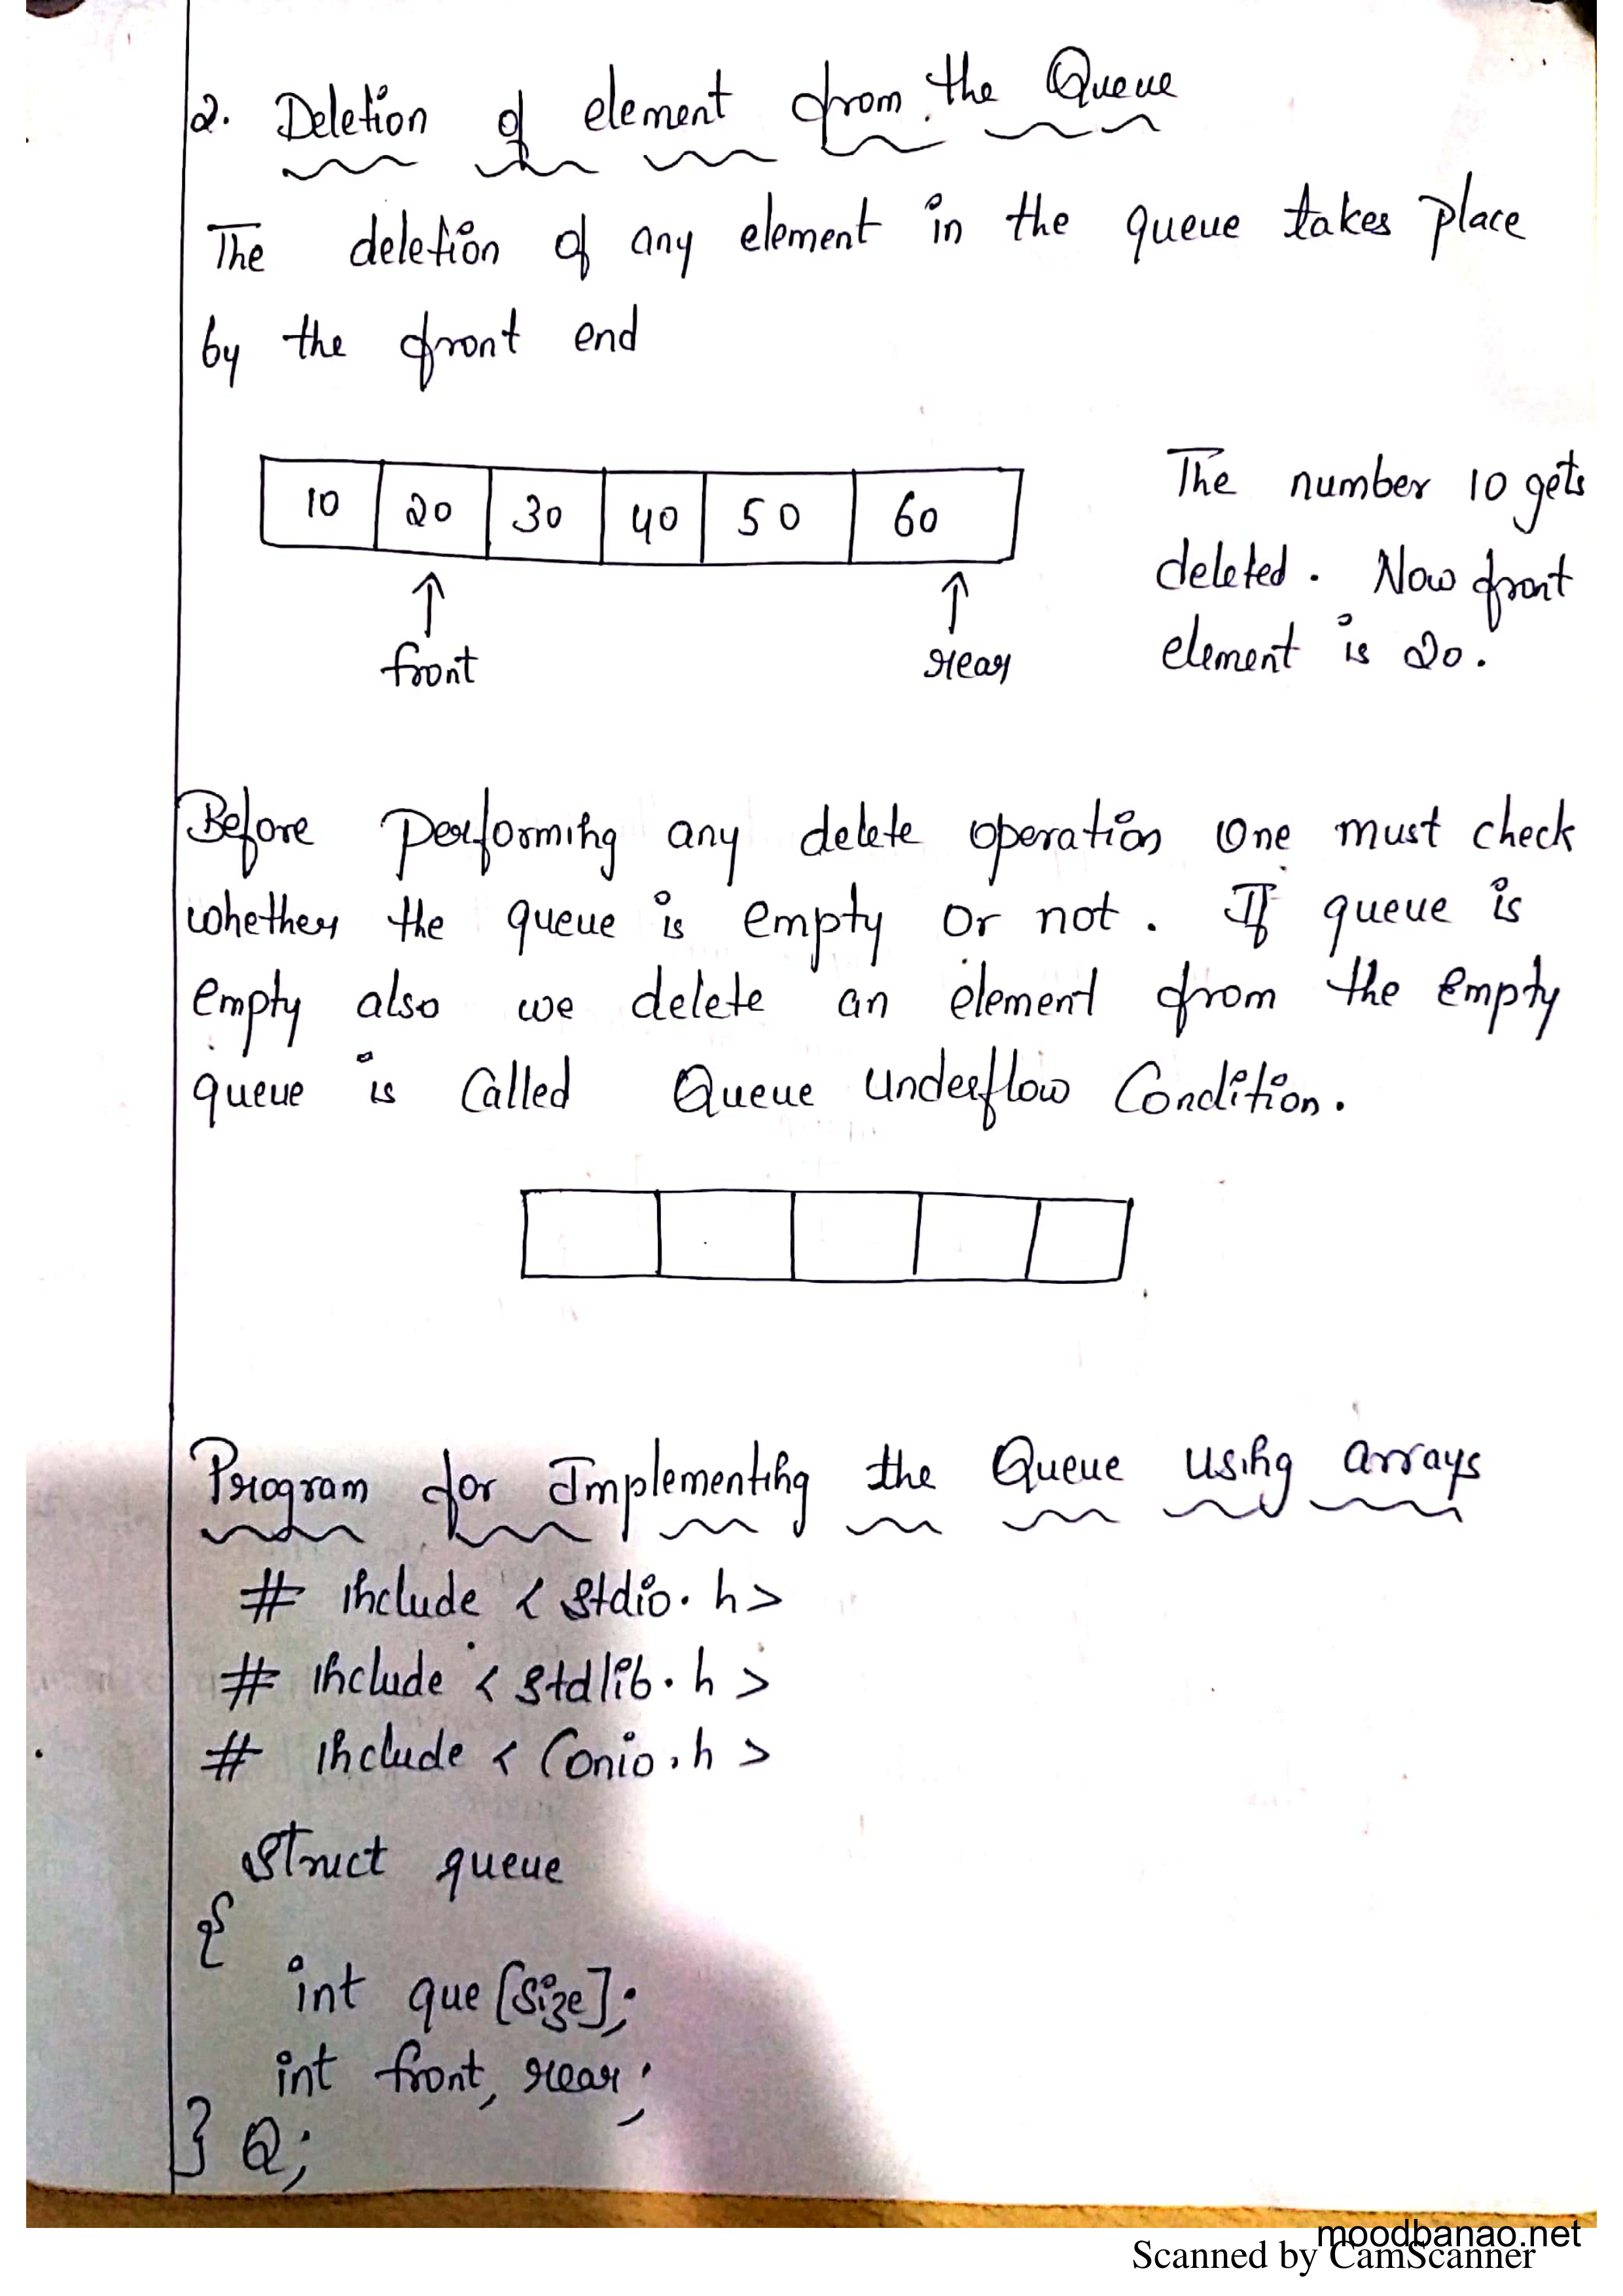 2. Deletion of element from the Queue
The deletion of any element in the queue takes place
by the front end
10 20 30 40 50 60
front rear
The number 10 gets
deleted. Now front
element is 20.
Before performing any delete operation one must check
whether the queue is empty or not. If queue is
empty also we delete an element from the empty
queue is Called Queue Underflow Condition.
Program for Implementing the Queue using arrays
# include < stdio.h>
# include < stdlib.h >
# include < Conio.h >
Struct queue
{
int que [size];
int front, rear;
} Q;
moodbanao.net
Scanned by CamScanner